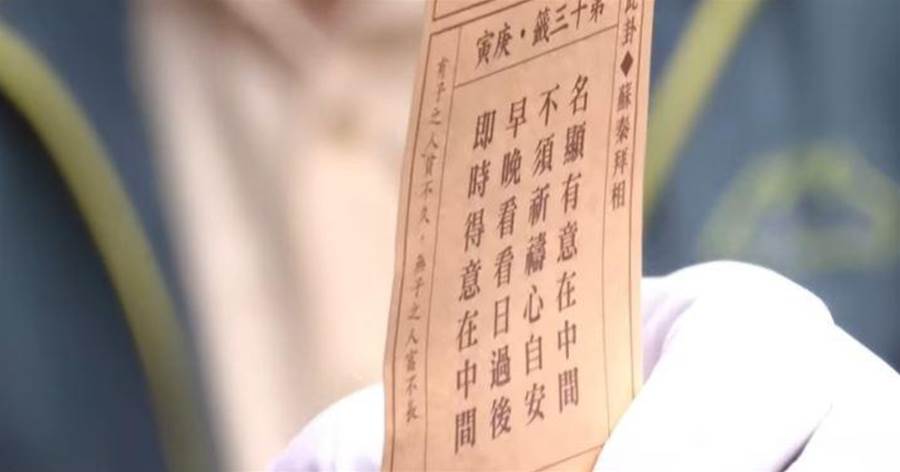 卦◆蘇秦拜相
第十三籤・庚寅
名顯有意在中間
不須祈禱心自安
早晚看看日過後
即時得意在中間
有子之人貧不久，無子之人富不長